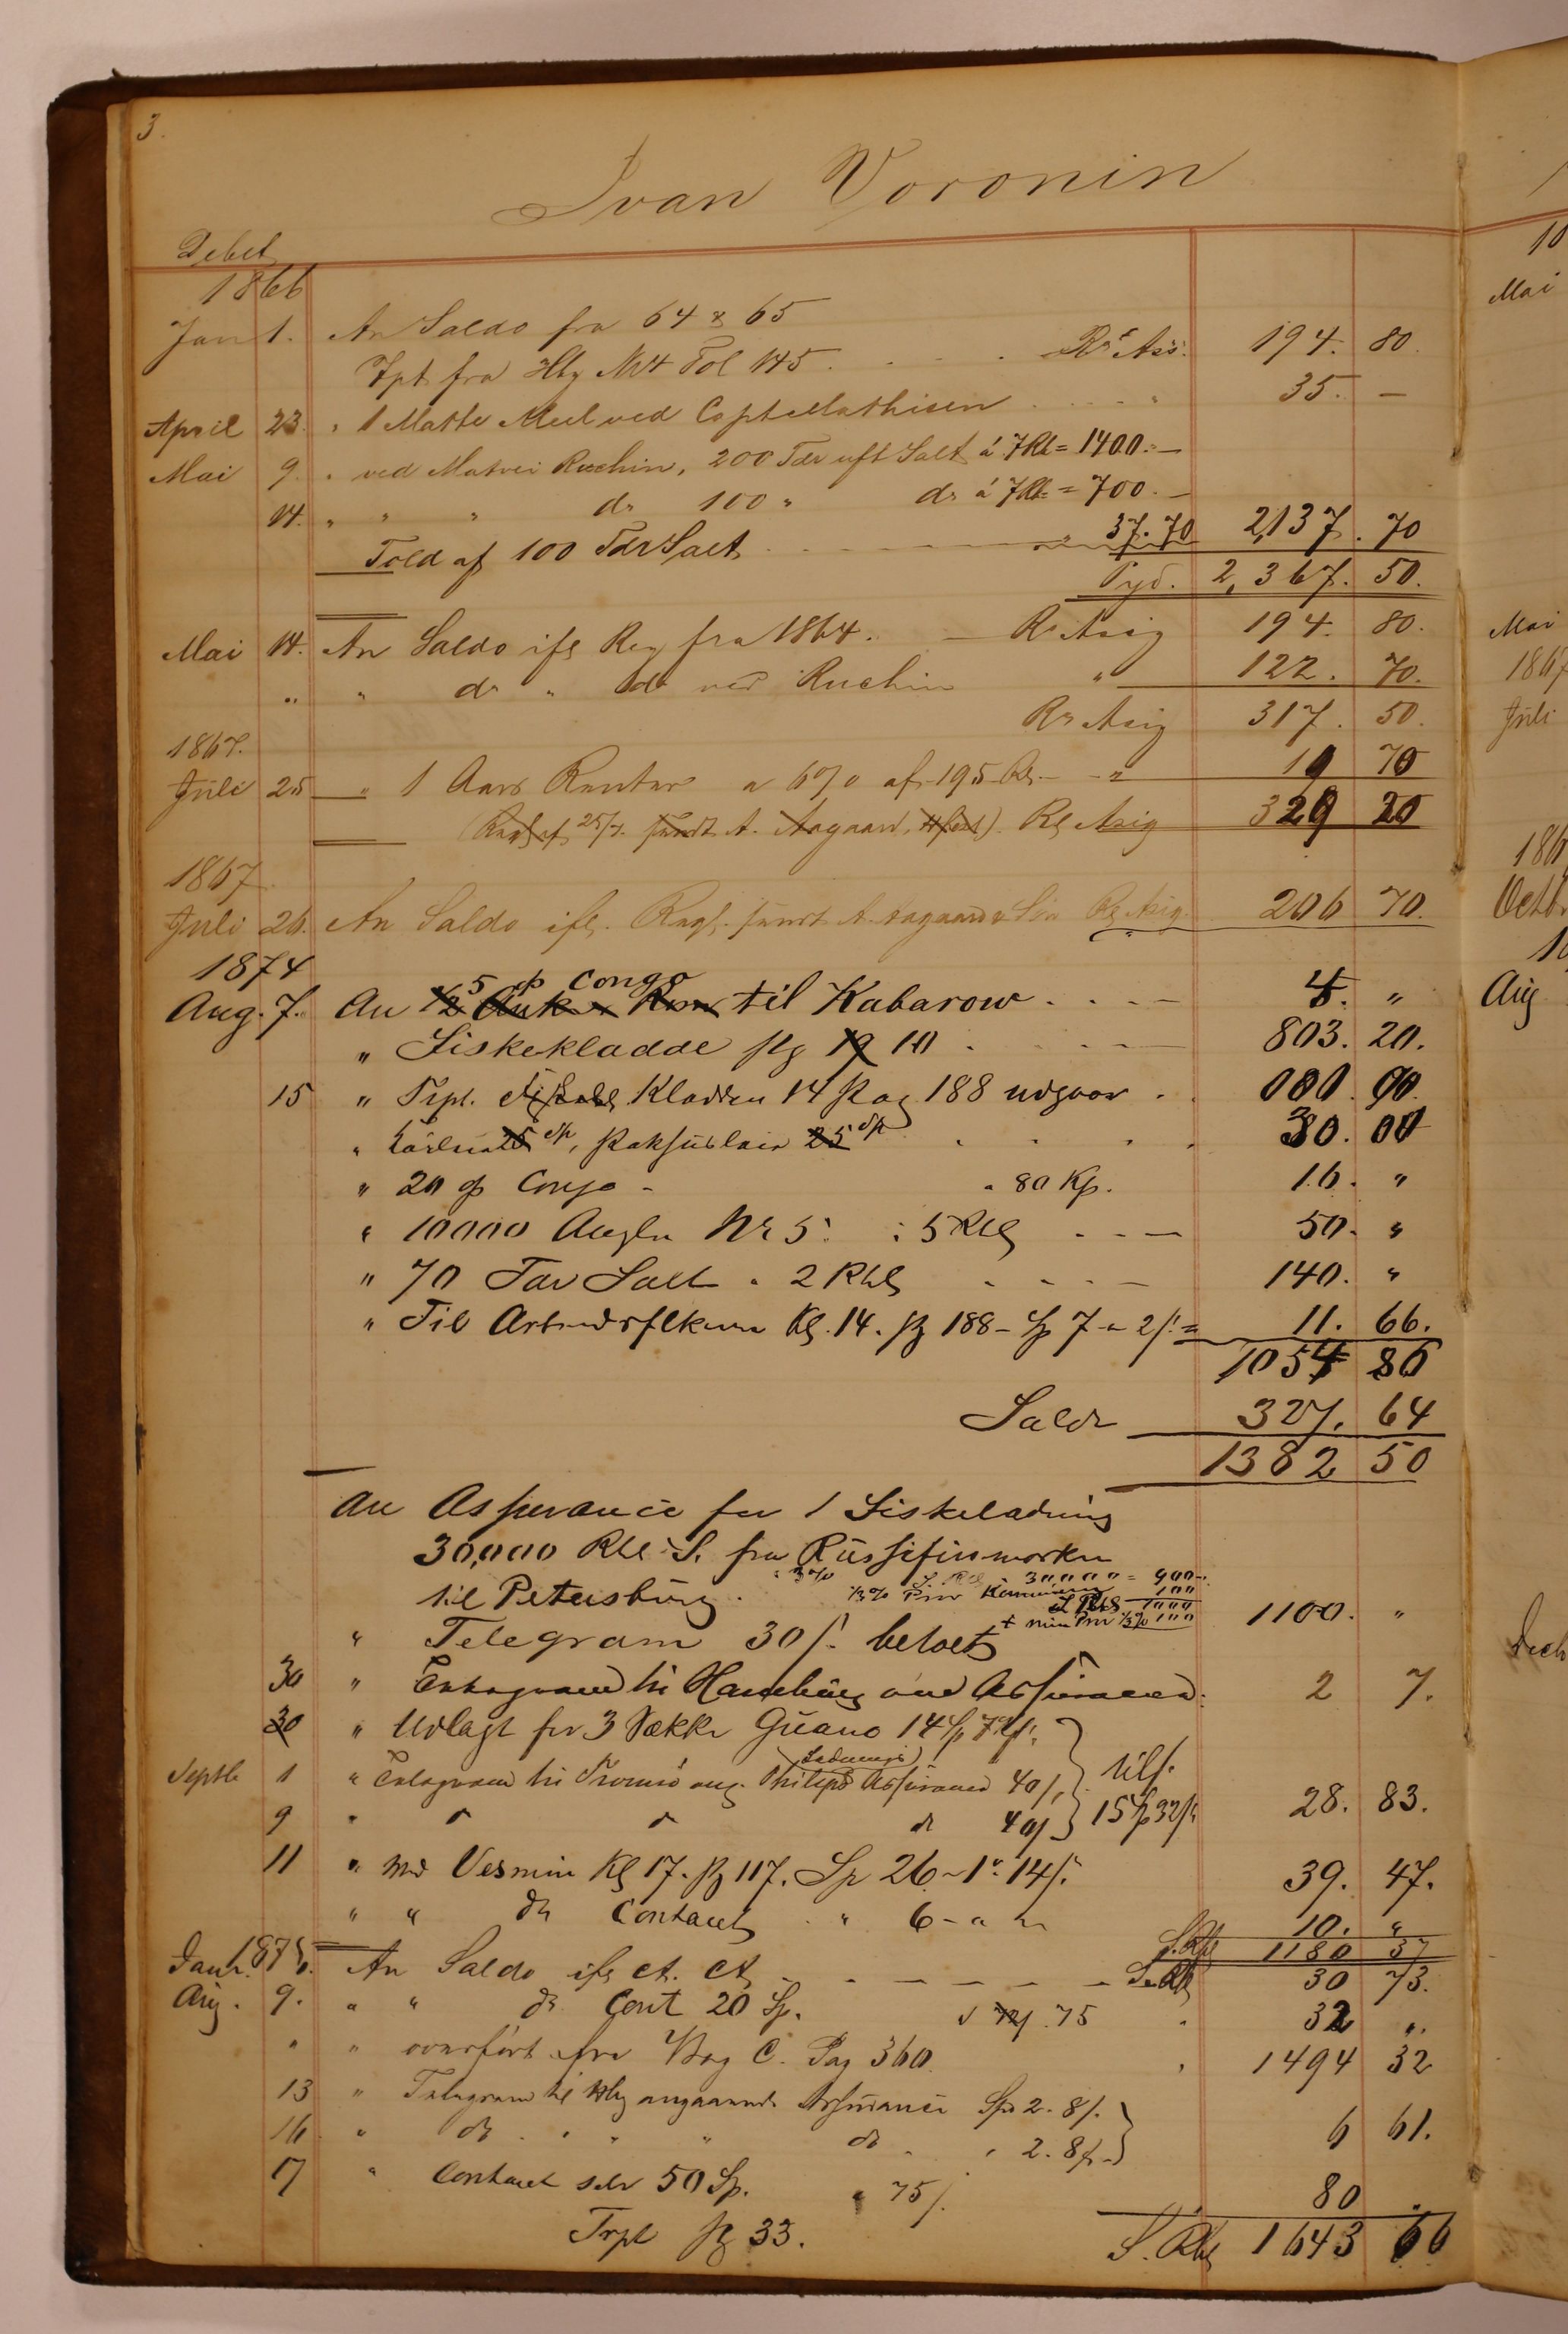 3.
Ivan Voronin
Debet
1866
Jan 1. An Saldo fra 64 & 65
Tpt fra Hbg No 4 Fol 145 . . . Rs Ass. 194. 80.
April 23. " 1 Matte Meel ved Capt Mathisen . . . " 35. —
Mai 9. " ved Matvei Ruchin, 200 Tdr uft Salt á 7 Rb = 1400. —
14. " " " do 100 " do á 7 Rb = 700. —
Told af 100 Tdr Salt 37. 70 2,137. 70
2,367. 50.
Mai 14. An Saldo ifl Reg fra 1864. — Rs Assig 194. 80.
" " do " do ved Ruchin " 122. 70.
Rs Assig 317. 50.
1867.
Juli 25 " 1 Aars Renter a 6% af 195 Rb. — " 19 70
25/7. A. Aagaard, Rb Assig 329 20
1867
Juli 26. An Saldo ifl. Regl. A. Aagaard & Søn Rb Assig. 206 70.
1874
Aug. 7. An 5 Congo til Kabarow . . . — 4. "
" Fiskekladde pg 10 . . . — 803. 20.
15 " Trpt. Kladden 14 pag 188 udgaar . .
" 30. 00
" 20 Congo - " 80 Kp. 16. "
" 10000 Angler Nr 5. : 5 Rbl . . — 50. "
" 70 Tdr Salt " 2 Rbl . . . — 140. "
" Til Kl. 14. pg 188 - Sp 7 " 2 /: = 11. 66.
1054 86
Saldo 327. 64
1382 50
An Assurance for 1 Fiskeladning
30,000 Rbl S. fra Russefinmarken
til Petersburg. 3% S. Rbl 30000 = 900
1/3% Prov 100
S Rbl 1000
+ min Prov 1/3% 100 1100. "
" Telegram 30 /: betalt
30 " Telegram til Hamburg om Assurancen. 2 7.
30 " Udlagt for 3 Sække Guano 14 Sp
Septb 1 " Telegram til Tromsø ang. Philips Ladnings) Assurance 40 /: tils.
9 " " " do 40 / 15 Sp 32 /: 28. 83.
11 " med Vesnin Kl 17. pg 117. Sp 26 - 1 " 14 /: 39. 47.
" " do Contant " 6 - " 10. "
S. Rbl 1180 37
1875. Janr. An Saldo ifl Ct. Ct. — — — — S. Rbl 30 73.
Aug. 9. " " do Cont 20 Sp. 75 " 32 "
" " overført fra Bog C. Pag 360. " 1494 32
13 " Telegram til Hbg angaaende Assurance Spd 2. 8 /:
16 " do " " " do " 2. 8 /: 6 61.
17 " Contant 50 Sp. " 75 /. 80 .
Trpt pg 33. S. Rbl 1643 66
10
Mai
Mai
1867
Juli
186
Octb.
Aug
Decb